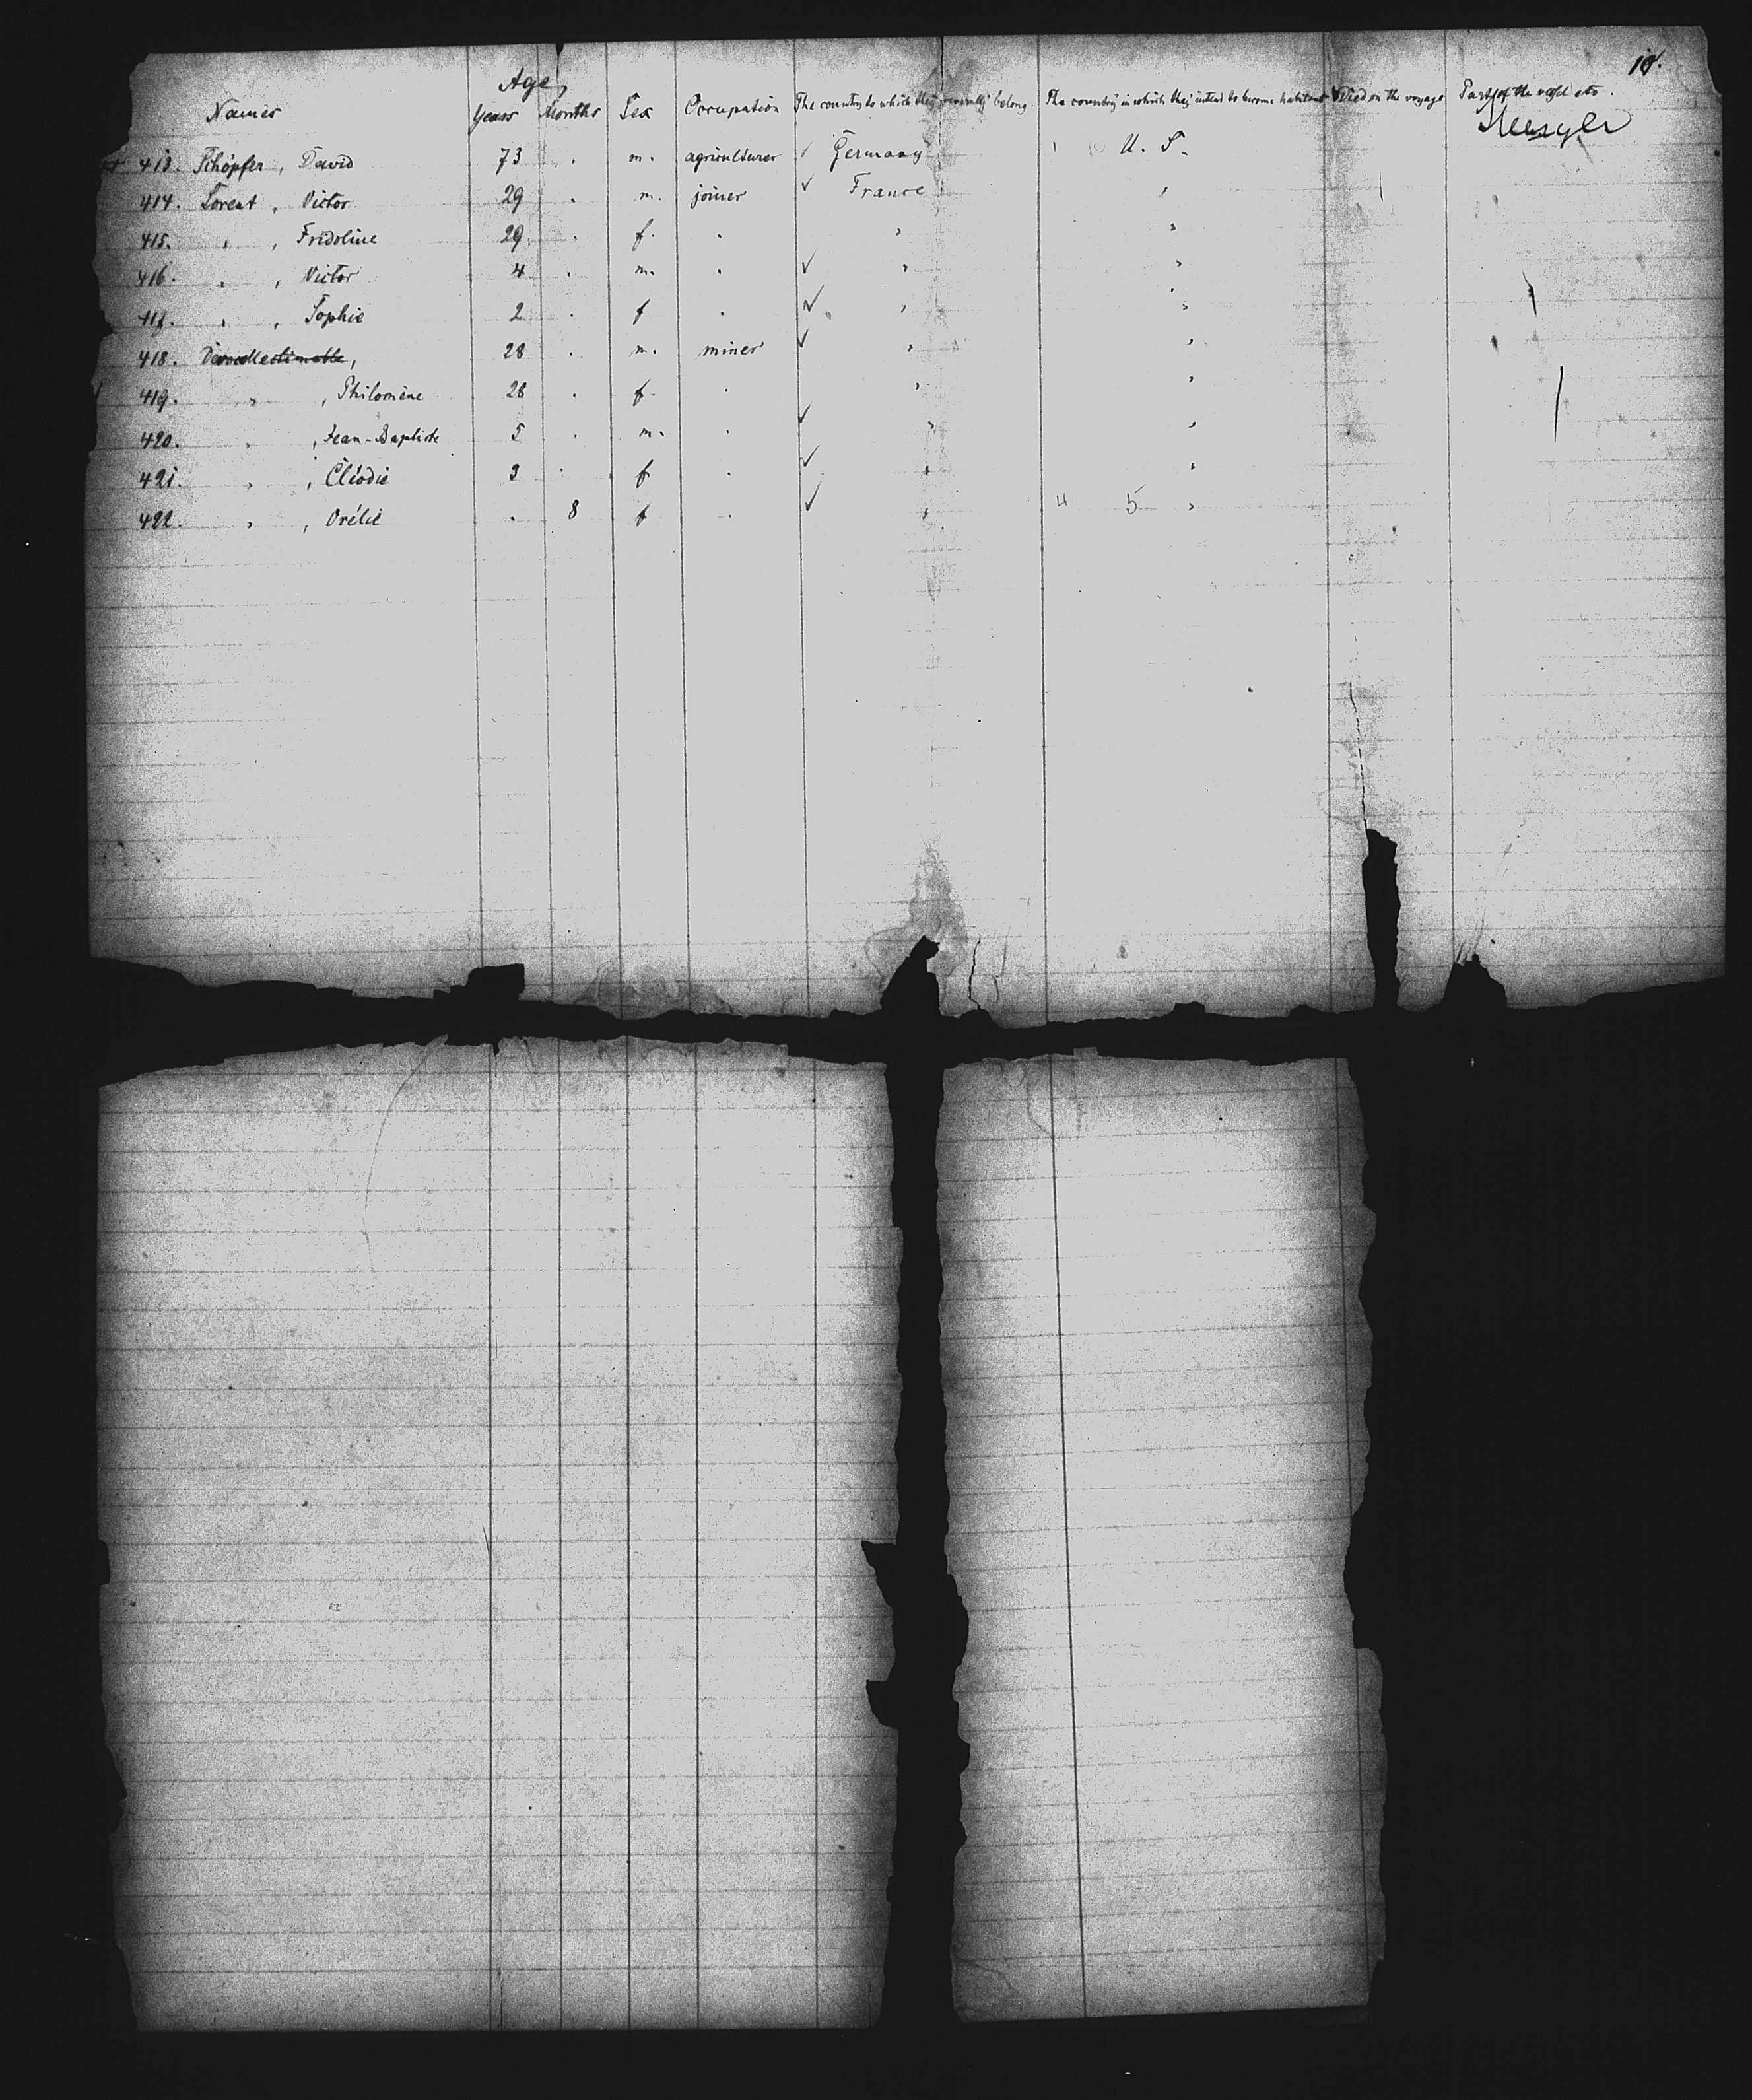 10.
Age,
Names Years Months Sex Occupation The country to which they severally belong. The country in which they intend to become habitans Died on the voyage Part of the vessel etc.
Steerage
413. Schöpfer, David 73 . m. agriculturer ✓ Germany U. S.
414. Lorent, Victor 29 . m. joiner ✓ France "
415. " , Fridoline 29 . f. . " "
416. " , Victor 4 . m. . ✓ " "
417. " , Sophie 2 . f . ✓ " "
418. , 28 . m. miner ✓ " "
419. " , Philomène 28 . f. . " "
420. " , Jean-Baptiste 5 . m. . ✓ " "
421. " , Cléodie 3 . f . ✓ " "
422. " , Orélie . 8 f . ✓ " 4 5 "